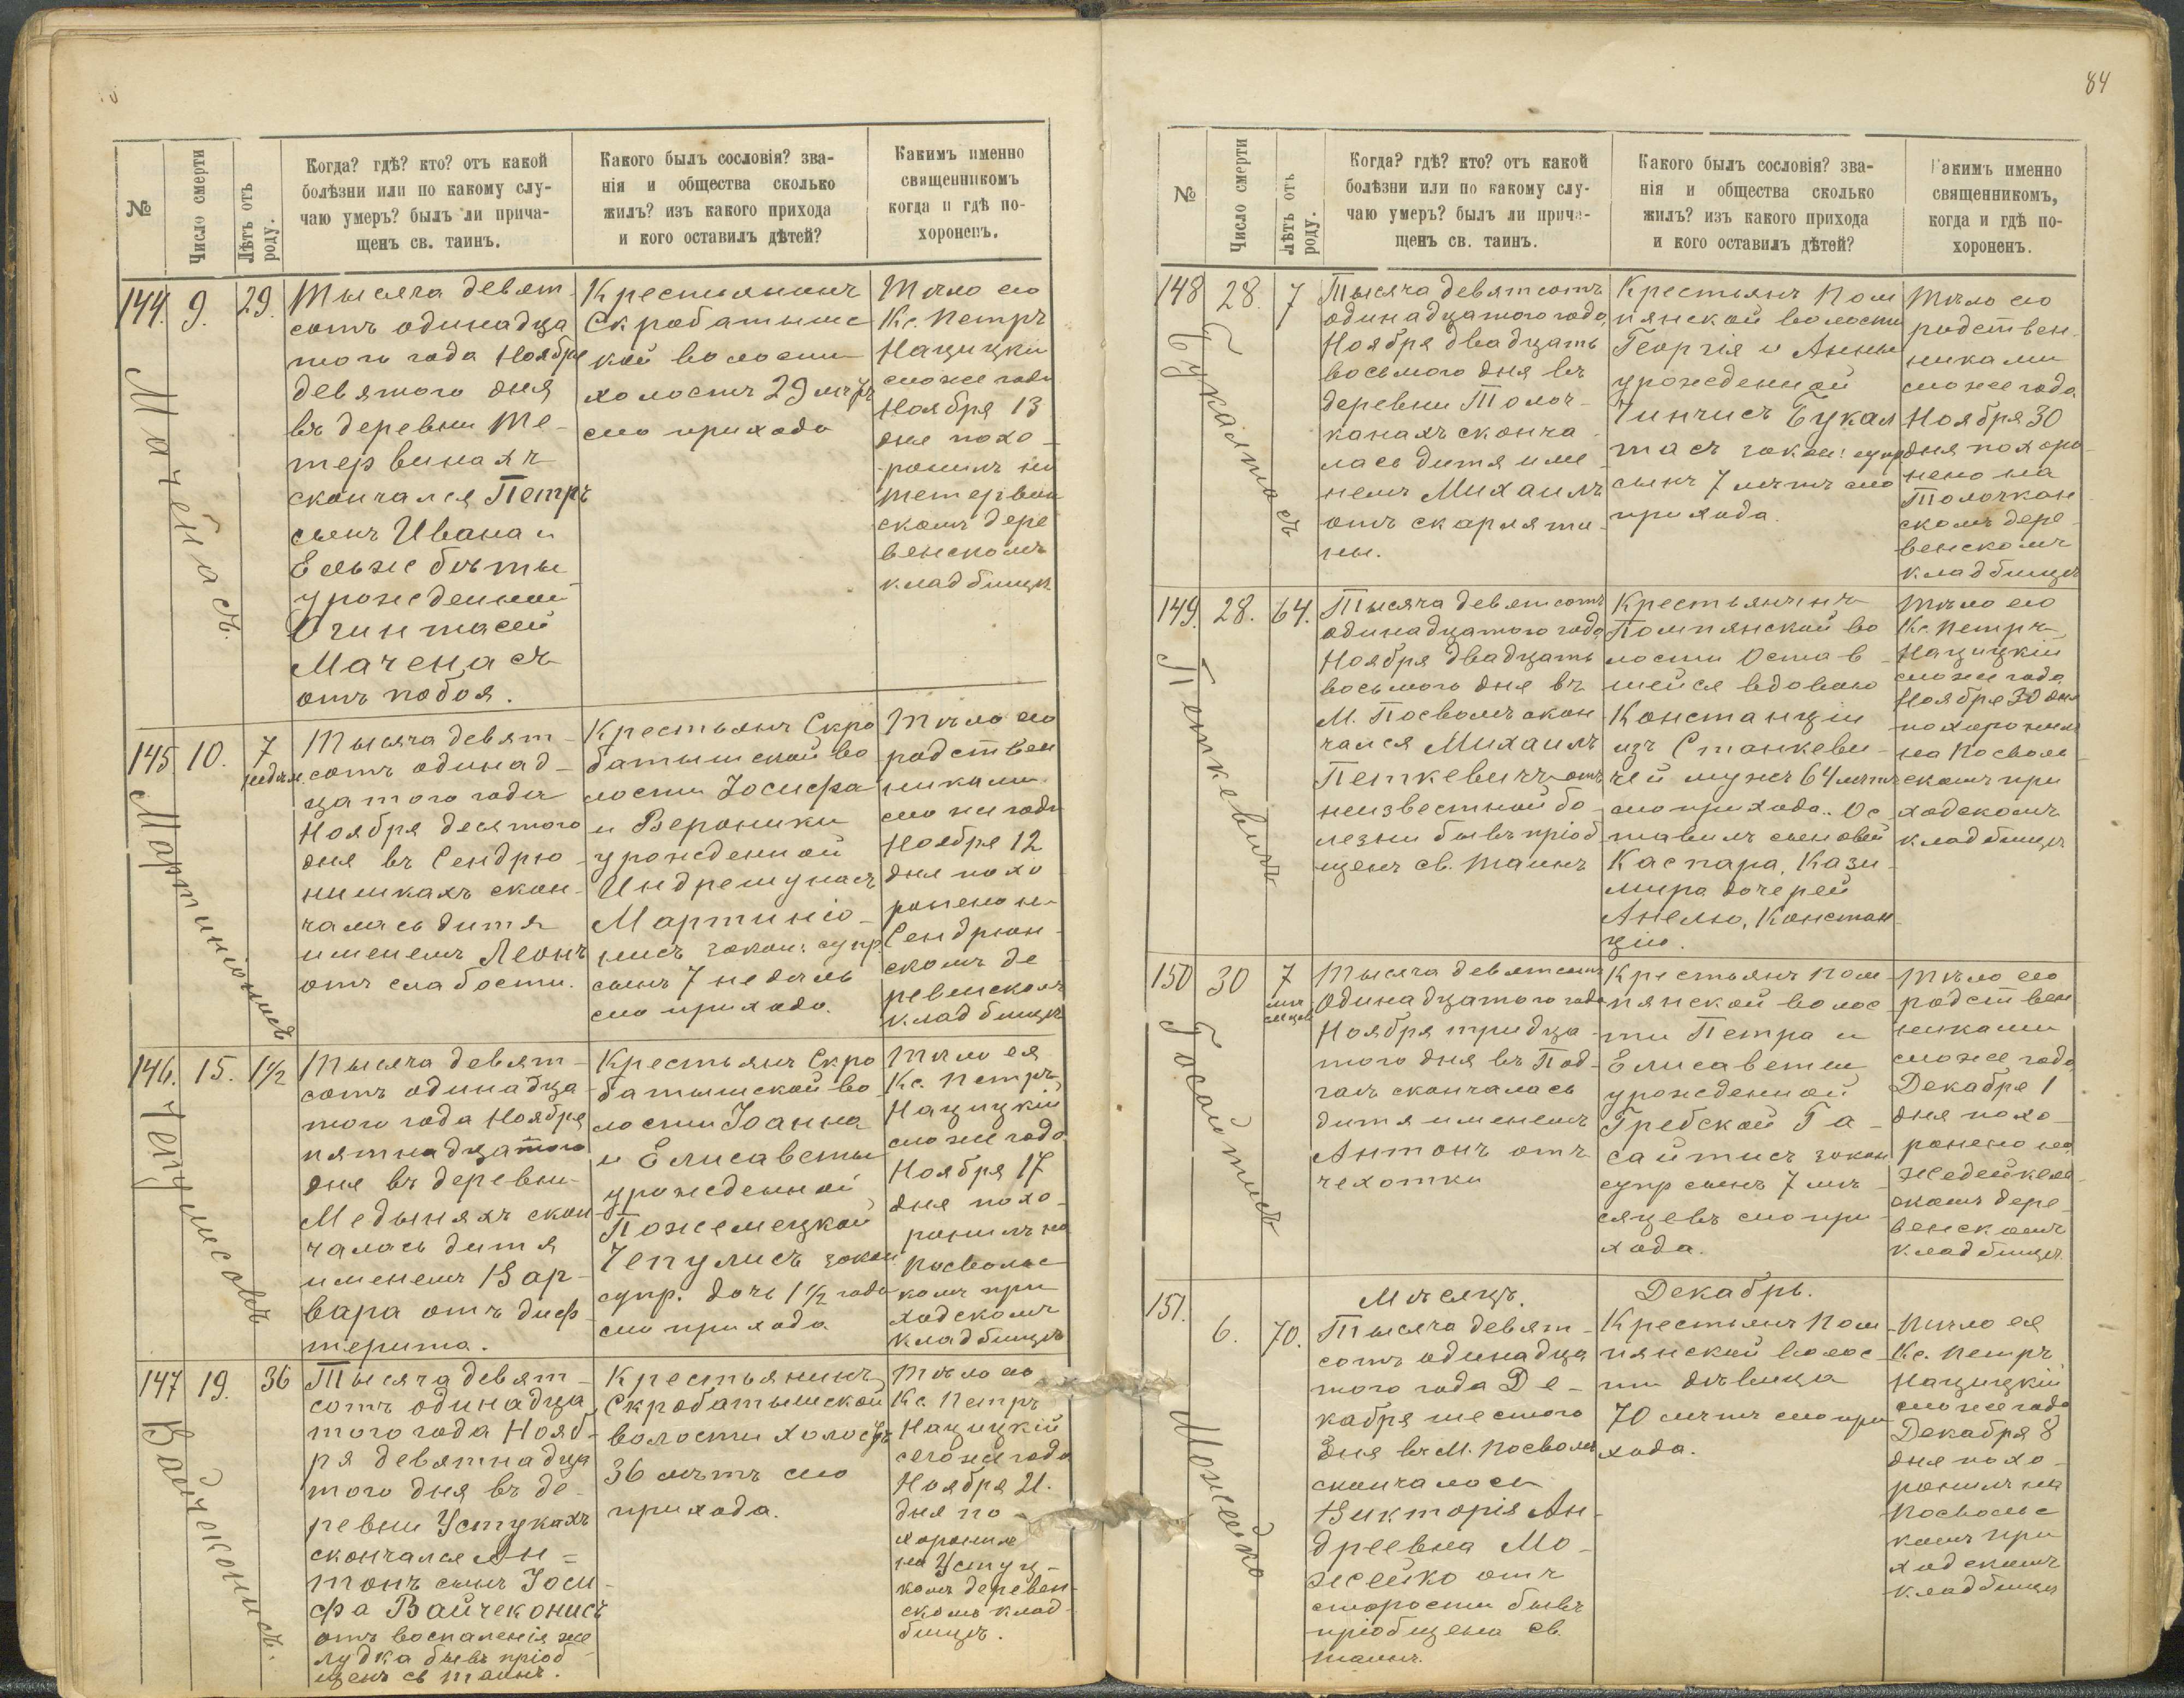 84
№
Число смерти
Лѣтъ отъ
роду.
Когда? гдѣ? кто? отъ какой
болѣзни или по какому слу-
чаю умеръ? былъ ли прича-
щенъ св. таинъ.
Какого былъ сословія? зва-
нія и общества сколько
жилъ? изъ какого прихода
и кого оставилъ дѣтей?
Какимъ именно
священникомъ
когда и гдѣ по-
хороненъ.
144.
9.
29.
Мачейнасъ.
Тысяча девят-
сотъ одинадца
того года Ноября
девятого дня
въ деревни Те-
тервинахъ
скончался Петръ
сынъ Ивана и
Ельжбѣты
урожденной
Очинтасей
Маченасъ
отъ побоя.
Крестьянинъ
Скробатышс
кой волости
холостъ 29 лѣтъ
сего прихода
Тѣло его
Кс. Петръ
Нацицкій
сего же года
Ноября 13
дня похо-
ронилъ на
Тетервин
скомъ дере
венскомъ
кладбищѣ
145
10.
7
недѣл.
Мартиніонисъ
Тысяча девят-
сотъ одинад-
цатого года
Ноября десятого
дня въ Сендрю-
нишкахъ скон-
чалась дитя
именемъ Леонъ
отъ слабости.
Крестьянъ Скро
батышской во
лости Іосифа
и Вероники
урожденной
Индрешунасъ
Мартиніо-
нисъ закон: супр.
сынъ 7 недѣль
сего прихода.
Тѣло его
родствен
никами
сего же года
Ноября 12
дня похо
ронено н-
Сендрюн-
скомъ де
ревенскомъ
кладбищѣ
146.
15.
1½
Чепулисова
Тысяча девят-
сотъ одинадца
того года Ноября
пятнадцатого
дня въ деревни
Медыняхъ скон
чалась дитя
именемъ Вар-
вара отъ диф
терита.
Крестьянъ Скро
батышской во
лости Іоанна
и Елисаветы
урожденной
Пожемецкой
Чепулисъ закон
супр. дочь 1½ года
сего прихода
Тѣло ея
Кс. Петръ
Нацицкій
сего же года
Ноября 17
дня похо-
ронилъ на
Посвольс
комъ при
ходскомъ
кладбищѣ
147
19.
36
Вайчеконисъ.
Тысяча девят-
сотъ одинадца
того года Нояб-
ря девятнадца
того дня въ де-
ревни Устукахъ
скончался Ан-
тонъ сынъ Іоси-
фа Вайчеконисъ
отъ воспаленія же
лудка бывъ пріоб
щенъ св таинъ.
Крестьянинъ
Скробатышской
волости холостъ
36 лѣтъ сего
прихода.
Тѣло его
Кс. Петръ
Нацицкій
сего же года
Ноября 21.
дня по-
хоронилъ
на Устуц-
комъ деревен-
скомъ клад-
бищѣ.
№
Число смерти
Лѣтъ отъ
роду.
Когда? гдѣ? кто? отъ какой
болѣзни или по какому слу-
чаю умеръ? былъ ли прича-
щенъ св. таинъ.
Какого былъ сословія? зва-
нія и общества сколько
жилъ? изъ какого прихода
и кого оставилъ дѣтей?
Какимъ именно
священникомъ,
когда и гдѣ по-
хороненъ.
148
28.
7
Букалтасъ
Тысяча девятсотъ
одинадцатого года
Ноября двадцать
восьмого дня въ
деревни Толоч-
канахъ сконча-
лась дитя име
немъ Михаилъ
отъ скарляти-
ны.
Крестьянъ Пом
пянской волости
Георгія и Анны
урожденной
Чинчисъ Букал
тасъ закон: супр
сынъ 7 лѣтъ сего
прихода.
Тѣло его
родствен
никами
сего же года
Ноября 30
дня похоро
нено на
Толочкан
скомъ дере-
венскомъ
кладбищѣ
149.
28.
64.
Петкевичъ
Тысяча девятсотъ
одинадцатого года
Ноября двадцать
восьмого дня въ
М. Посволѣ скон
чался Михаилъ
Петкевичъ отъ
неизвестной бо-
лезни бывъ пріоб
щенъ св. таинъ
Крестьянинъ
Помпянской во
лости Остав-
шейся вдовою
Констанціи
изъ Станкеви-
чей мужъ 64 лѣтъ
сего прихода. Ос
тавилъ сыновей
Каспара, Кази-
мира дочерей
Анелю, Констан
цію.
Тѣло его
Кс. Петръ
Нацицкій
сего же года
Ноября 30 дня
похоронилъ
на Посволь
скомъ при
ходскомъ
кладбищѣ
150
30
7
мѣ
сяцев
Гасайтисъ
Тысяча девятсотъ
одинадцатого года
Ноября тридца-
того дня въ Под-
галъ скончалась
дитя именемъ
Антонъ отъ
чехотки
Крестьянъ Пом
пянской волос
ти Петра и
Елисаветы
урожденной
Гребской Га-
сайтисъ закон
супр сынъ 7 мѣ-
сяцевъ сего при-
хода.
Тѣло его
родствен
никами
сего же года
Декабря 1
дня похо-
ронено на
Жедейкел
скомъ дере-
венскомъ
кладбищѣ
Мѣсяцъ.
Декабрь.
151.
6.
70.
Можейко
Тысяча девят-
сотъ одинадца
того года Де-
кабря шестого
дня въ М. Посволѣ
скончалась
Викторія Ан-
дреевна Мо-
жейко отъ
старости бывъ
пріобщена св.
таинъ.
Крестьянъ Пом
пянской волос
ти дѣвица
70 лѣтъ сего при
хода.
Тѣло ея
Кс. Петръ
Нацицкій
сего же года
Декабря 8
дня похо-
ронилъ на
Посвольс
комъ при
ходскомъ
кладбищѣ